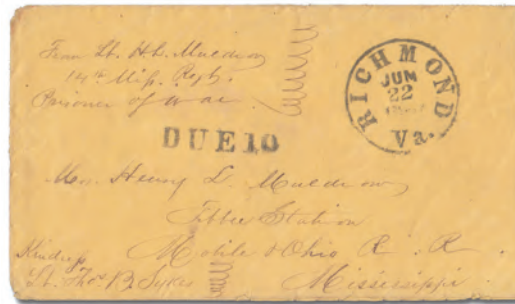 From Lt. H. L. Muldrow
14th Miss. Regt.
Prisoner of war
RICHMOND
JUN
22
Va.
DUE 10
Henry L. Muldrow
Tibbee Station
Mobile & Ohio R. R.
Mississippi
Kindness
Lt. Thos B. Sykes